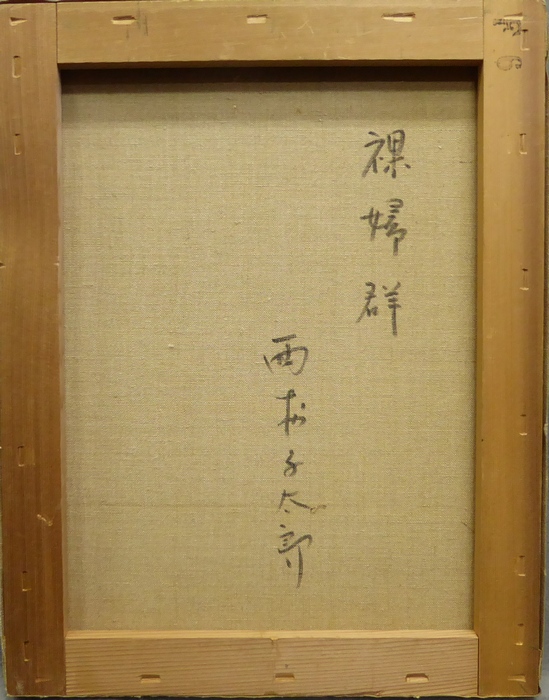 裸婦群
西村千太郎